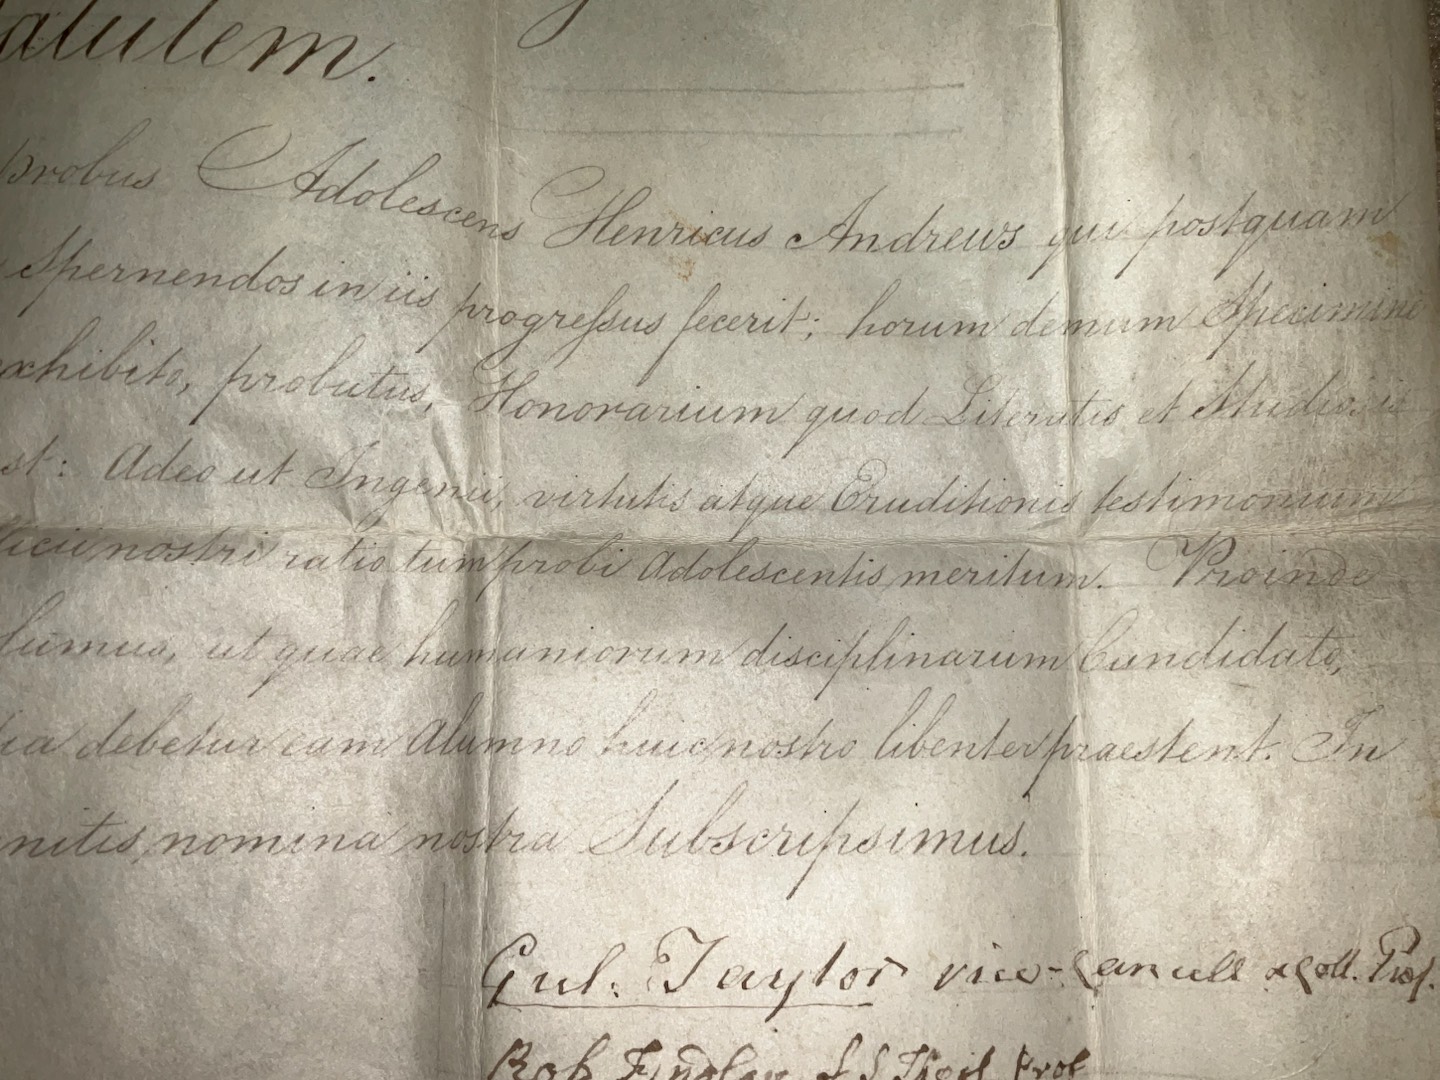 alutem.
probus Adolescens Henricus Andrews qui postquam
Spernendos in iis progressus fecerit; horum demum Specimini
exhibito, probatus, Honorarium quod Literatis et Studiosis
st: Adeo ut Ingenii, virtutis atque Eruditionis testimonium
ficii nostri ratio tum probi Adolescentis meritum. Proinde
lumus, ut quae humaniorum disciplinarum Candidato,
tia debetur eam Alumno huic nostro libenter praestent. In
nitis nomina nostra Subscripsimus.
Gul. Taylor vice-Cancell & Coll. Prof.
Rob Findlay S S Theol Prof